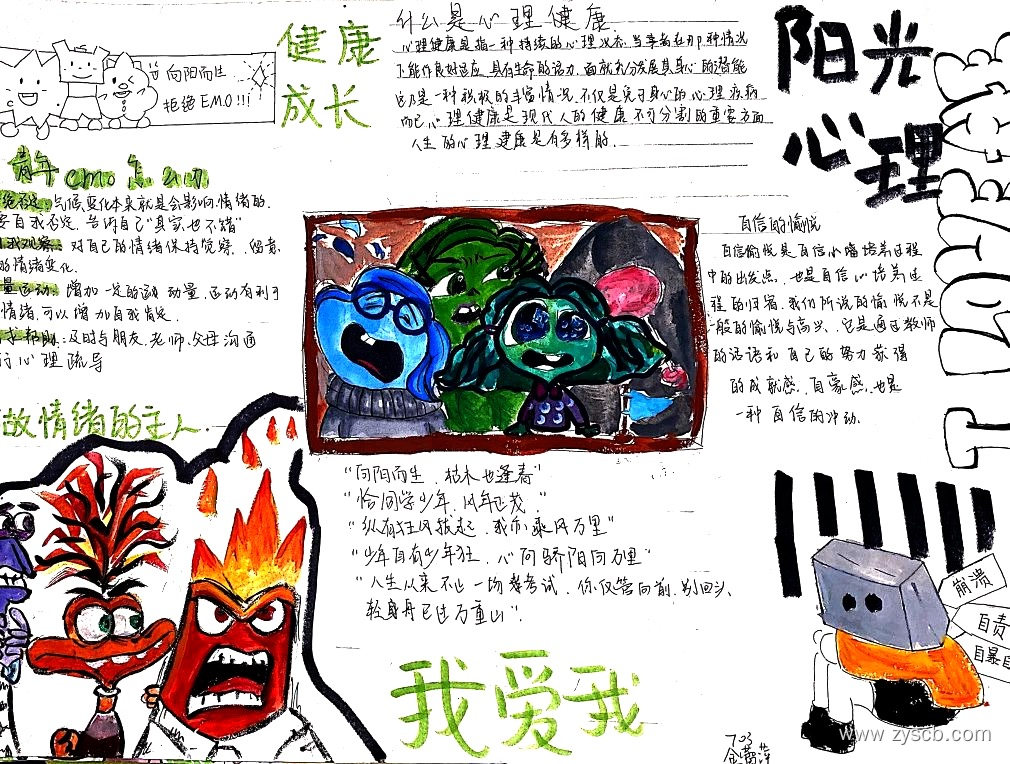 健康
成长
向阳而生
拒绝EMO!!!
什么是心理健康
心理健康是指一种持续的心理状态,当事者在那种情况
下能作良好适应,具有生命的活力,面能充分发展其身心的潜能
这乃是一种积极的丰富情况,不仅是免于身心的心理疾病
而已心理健康是现代人的健康不可分割的重要方面
人生的心理健康是有多样的.
阳光
心理
青年emo怎么办
气候变化本来就是会影响情绪的.
要自我否定,告诉自己"真家也不错"
自我观察:对自己的情绪保持觉察,留意
的情绪变化.
量运动:增加一定的运动量,运动有利于
情绪,可以增加自我肯定.
求帮助:及时与朋友、老师、父母沟通
行心理疏导
做情绪的主人
自信的愉悦
自信愉悦是自信心墙培养过程
中的出发点,也是自信心培养过
程的归宿.我们所说的愉悦不是
一般的愉悦与高兴,它是通过教师
的话语和自己的努力获得
的成就感,自豪感,也是
一种自信的冲动.
"向阳而生,枯木也逢春"
"恰同学少年,风华正茂."
"纵有狂风拔起,我亦乘风万里"
"少年自有少年狂,心向骄阳向万里"
"人生从来不止一场春考试,你仅管向前,别回头,
轻舟已过万重山".
我爱我
崩溃
自责
自暴自
703
www.zyscb.com